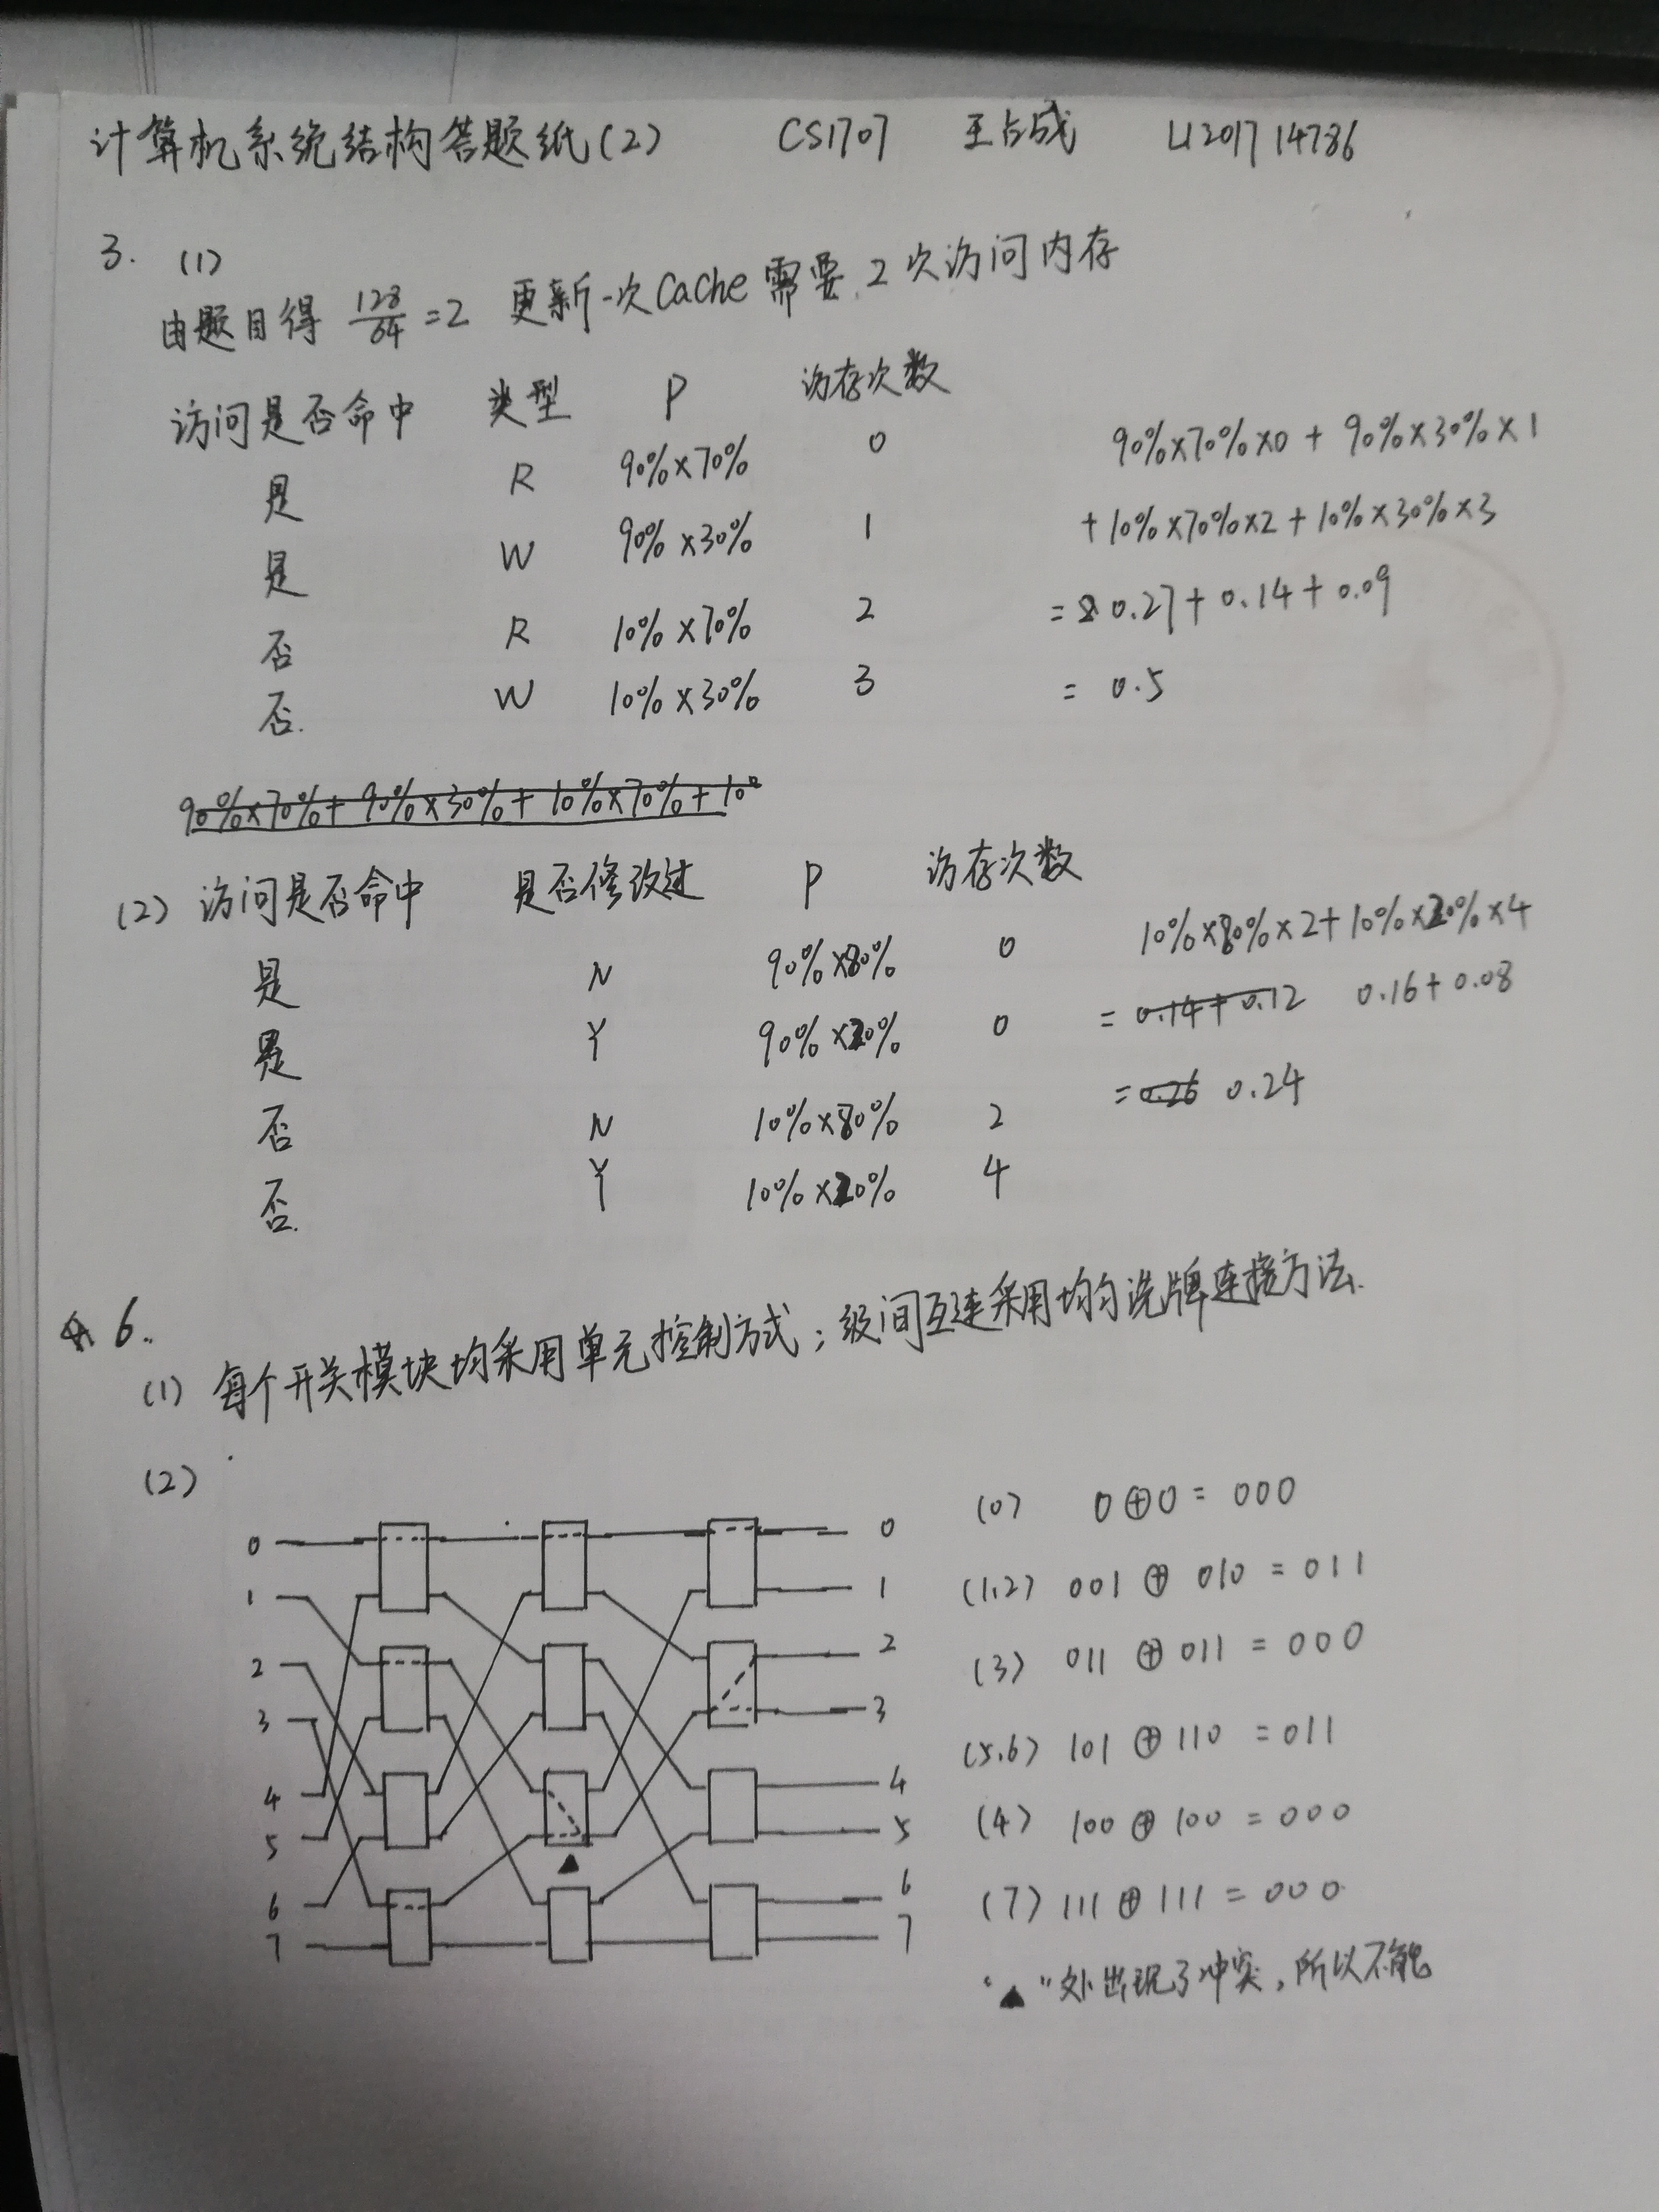 计算机系统结构答题纸(2) CS1707 王占成 U201714786
3. (1)
由题目得 128/64 =2 更新一次Cache需要2次访问内存
访问是否命中 类型 P 访存次数
是 R 90%×70% 0
是 W 90%×30% 1
否 R 10%×70% 2
否. W 10%×30% 3
90%×70%×0 + 90%×30%×1
+10%×70%×2+10%×30%×3
= 0.27+0.14+0.09
= 0.5
90%×70%+90%×30%+10%×70%+10%
(2) 访问是否命中 是否修改过 P 访存次数
是 N 90%×80% 0
是 Y 90%×20% 0
否 N 10%×80% 2
否. Y 10%×20% 4
10%×80%×2+10%×20%×4
= 0.14+0.12 0.16+0.08
= 0.26 0.24
6.
(1) 每个开关模块均采用单元控制方式;级间互连采用均匀洗牌连接方法.
(2)
0 0
1 1
2 2
3 3
4 4
5 5
6 6
7 7
(0) 0⊕0= 000
(1,2) 001 ⊕ 010 = 011
(3) 011 ⊕ 011 = 000
(5,6) 101 ⊕ 110 = 011
(4) 100 ⊕ 100 = 000
(7) 111 ⊕ 111 = 000
"▲"处出现了冲突,所以不能